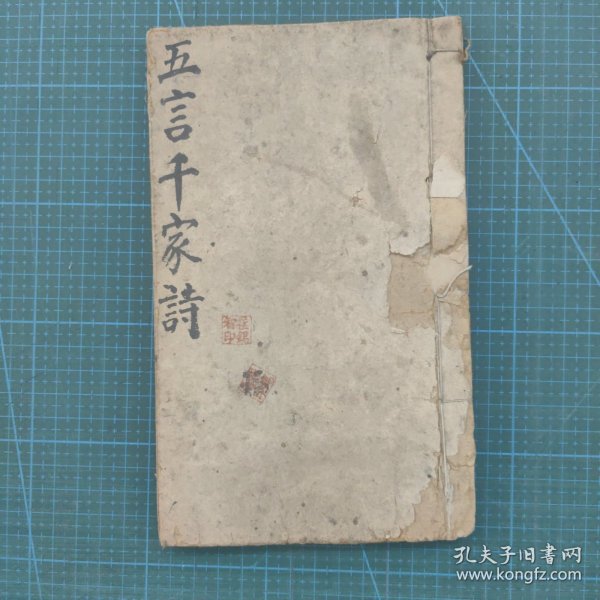 五言千家詩
孔夫子旧书网
www.kongfz.com